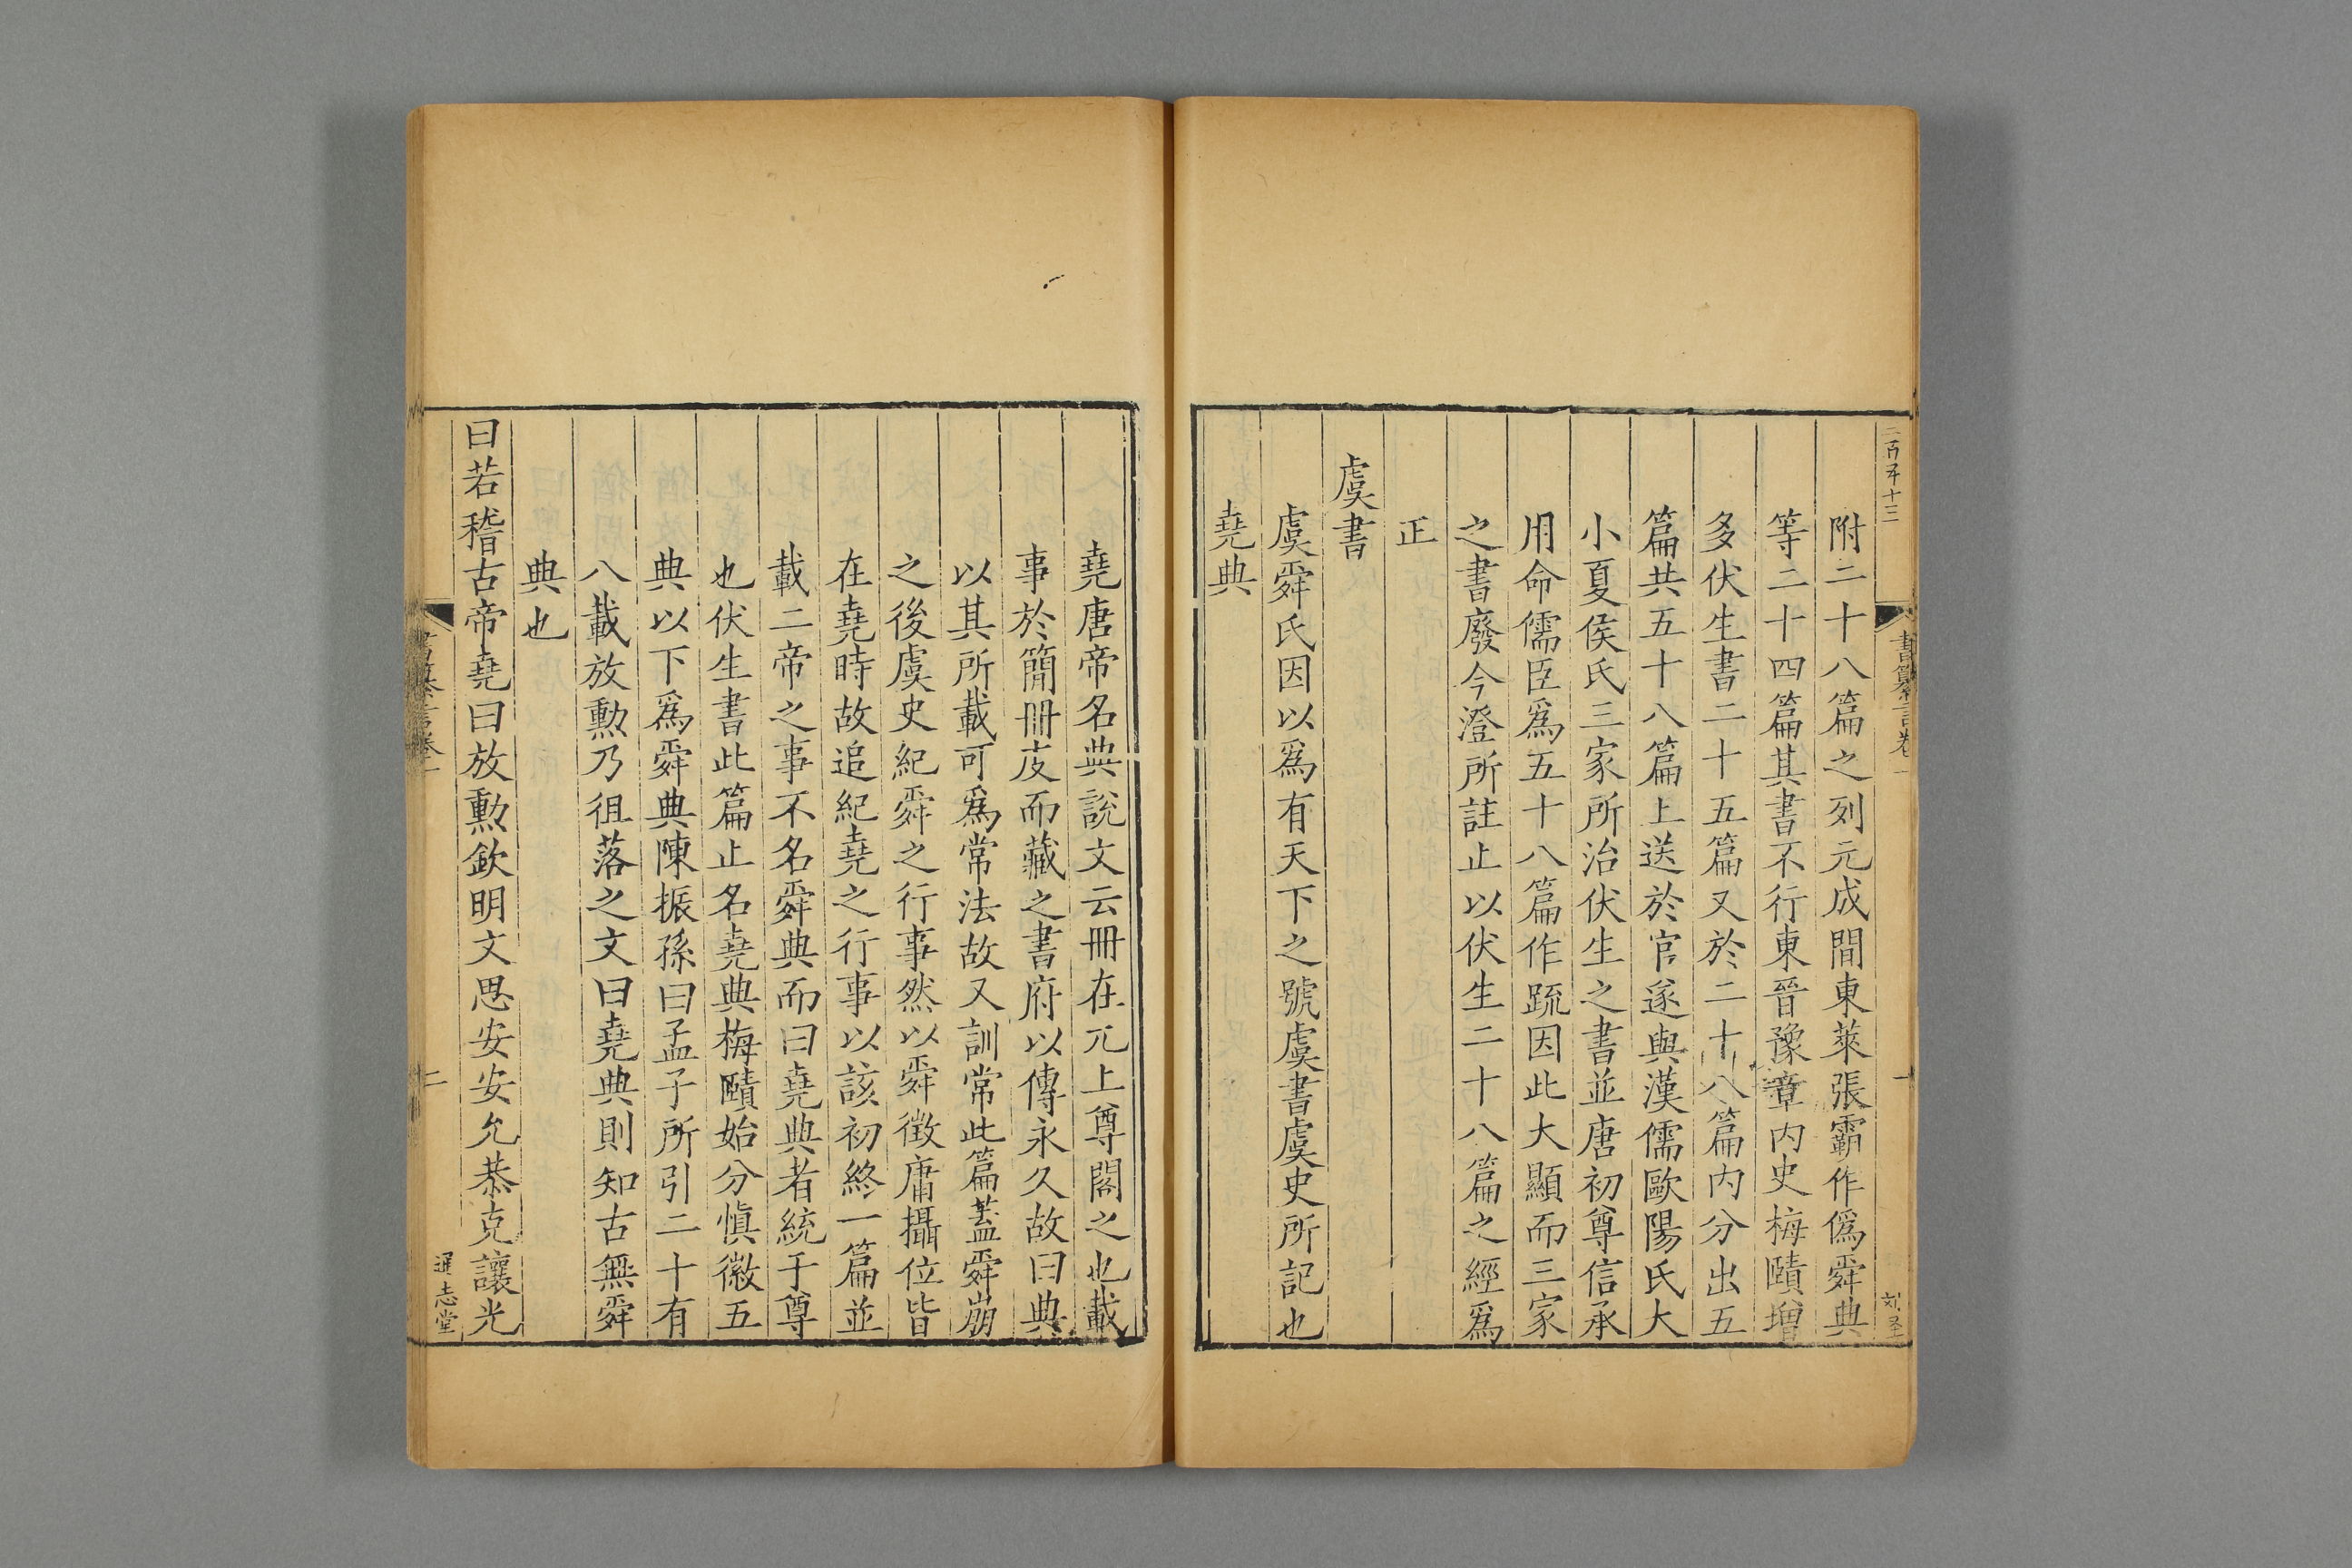 二百五十三
書纂言卷一
一
附二十八篇之列元成間東萊張霸作僞舜典
等二十四篇其書不行東晉豫章內史梅賾增
多伏生書二十五篇又於二十八篇內分出五
篇共五十八篇上送於官遂與漢儒歐陽氏大
小夏侯氏三家所治伏生之書並唐初尊信承
用命儒臣爲五十八篇作疏因此大顯而三家
之書廢今澄所註止以伏生二十八篇之經爲
正
虞書
虞舜氏因以爲有天下之號虞書虞史所記也
堯典
堯唐帝名典說文云冊在丌上尊閣之也載
事於簡冊庋而藏之書府以傳永久故曰典
以其所載可爲常法故又訓常此篇蓋舜崩
之後虞史紀舜之行事然以舜徵庸攝位皆
在堯時故追紀堯之行事以該初終一篇並
載二帝之事不名舜典而曰堯典者統于尊
也伏生書此篇止名堯典梅賾始分愼徽五
典以下爲舜典陳振孫曰孟子所引二十有
八載放勳乃徂落之文曰堯典則知古無舜
典也
曰若稽古帝堯曰放勳欽明文思安安允恭克讓光
書纂言卷一
二
通志堂